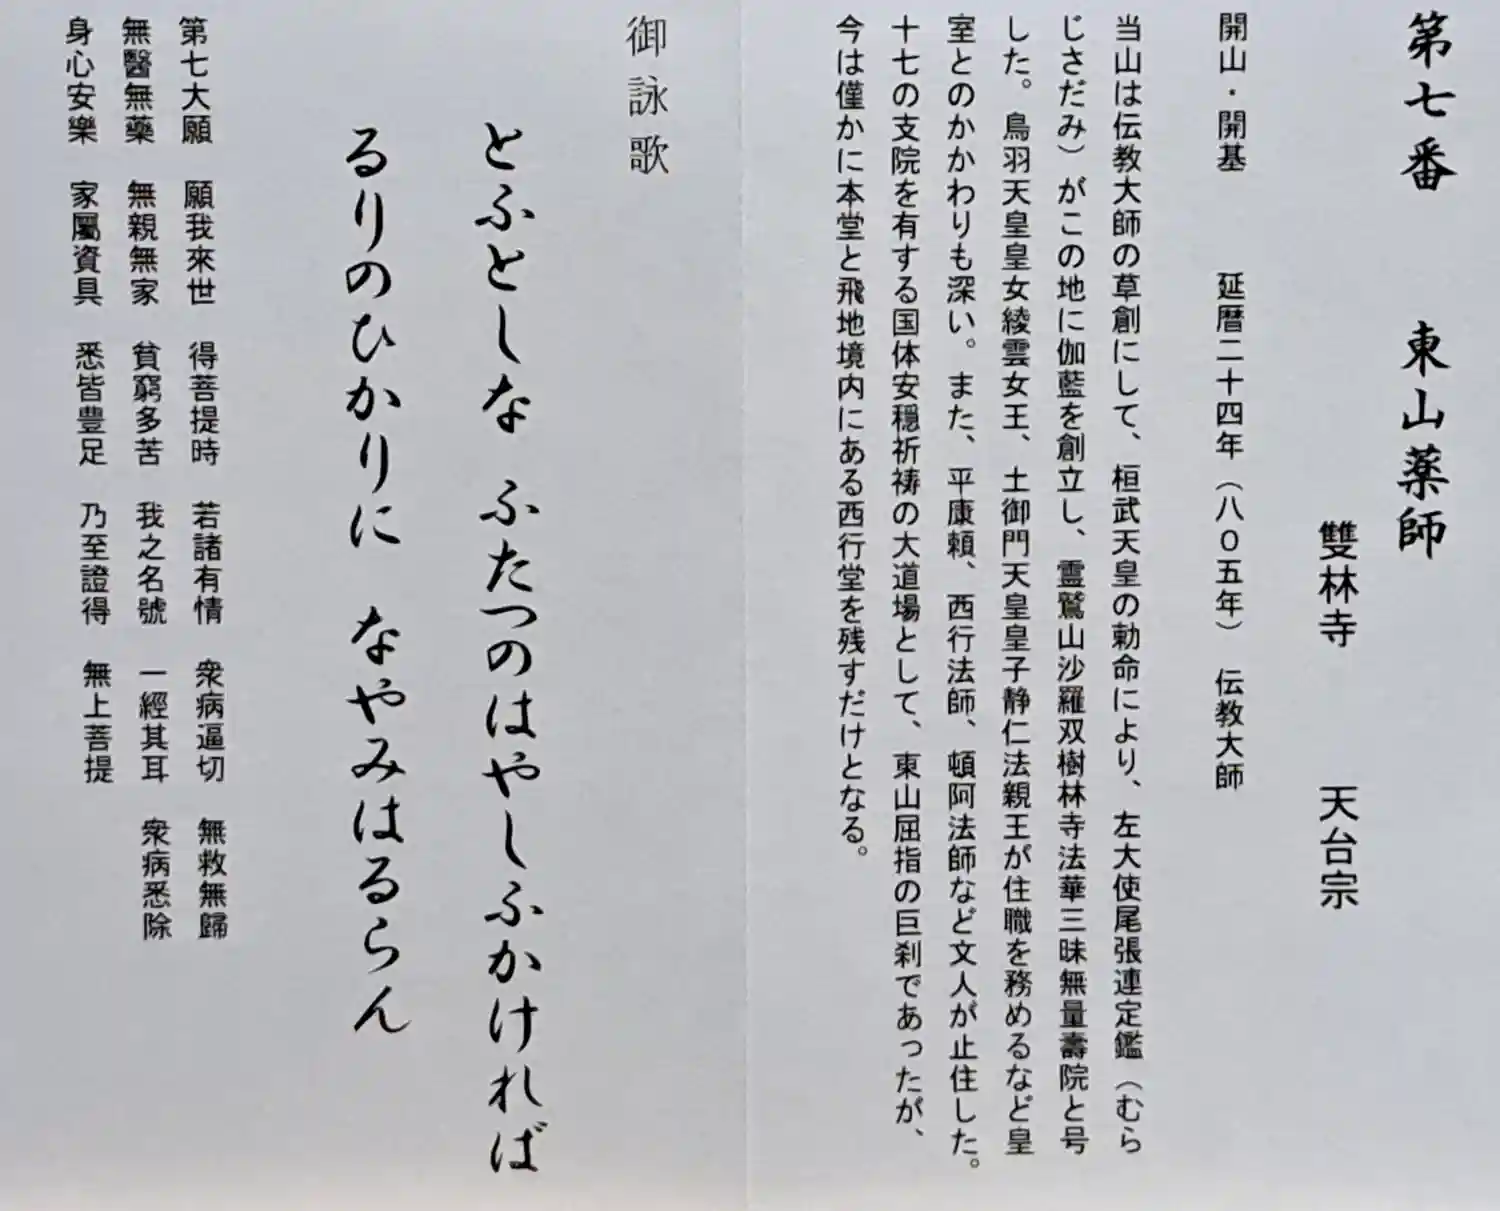 第七番　東山薬師
雙林寺　天台宗
開山・開基　延暦二十四年（八０五年）　伝教大師
当山は伝教大師の草創にして、桓武天皇の勅命により、左大使尾張連定鑑（むら
じさだみ）がこの地に伽藍を創立し、霊鷲山沙羅双樹林寺法華三昧無量壽院と号
した。鳥羽天皇皇女綾雲女王、土御門天皇皇子静仁法親王が住職を務めるなど皇
室とのかかわりも深い。また、平康頼、西行法師、頓阿法師など文人が止住した。
十七の支院を有する国体安穏祈祷の大道場として、東山屈指の巨刹であったが、
今は僅かに本堂と飛地境内にある西行堂を残すだけとなる。
御詠歌
とふとしな　ふたつのはやしふかければ
るりのひかりに　なやみはるらん
第七大願　願我來世　得菩提時　若諸有情　衆病逼切　無救無歸
無醫無藥　無親無家　貧窮多苦　我之名號　一經其耳　衆病悉除
身心安樂　家屬資具　悉皆豊足　乃至證得　無上菩提